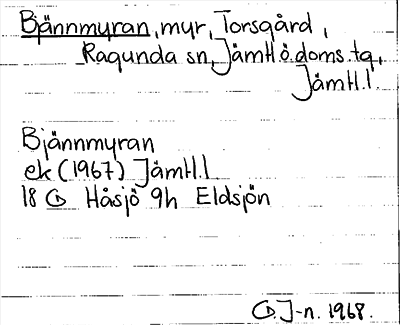 Bjännmyran, myr, Torsgård,
Ragunda sn, Jämtl.ö.doms.tg,
Jämtl.l.
Bjännmyran
ek (1967) Jämtl.l
18 Håsjö 9h Eldsjön
J-n. 1968.